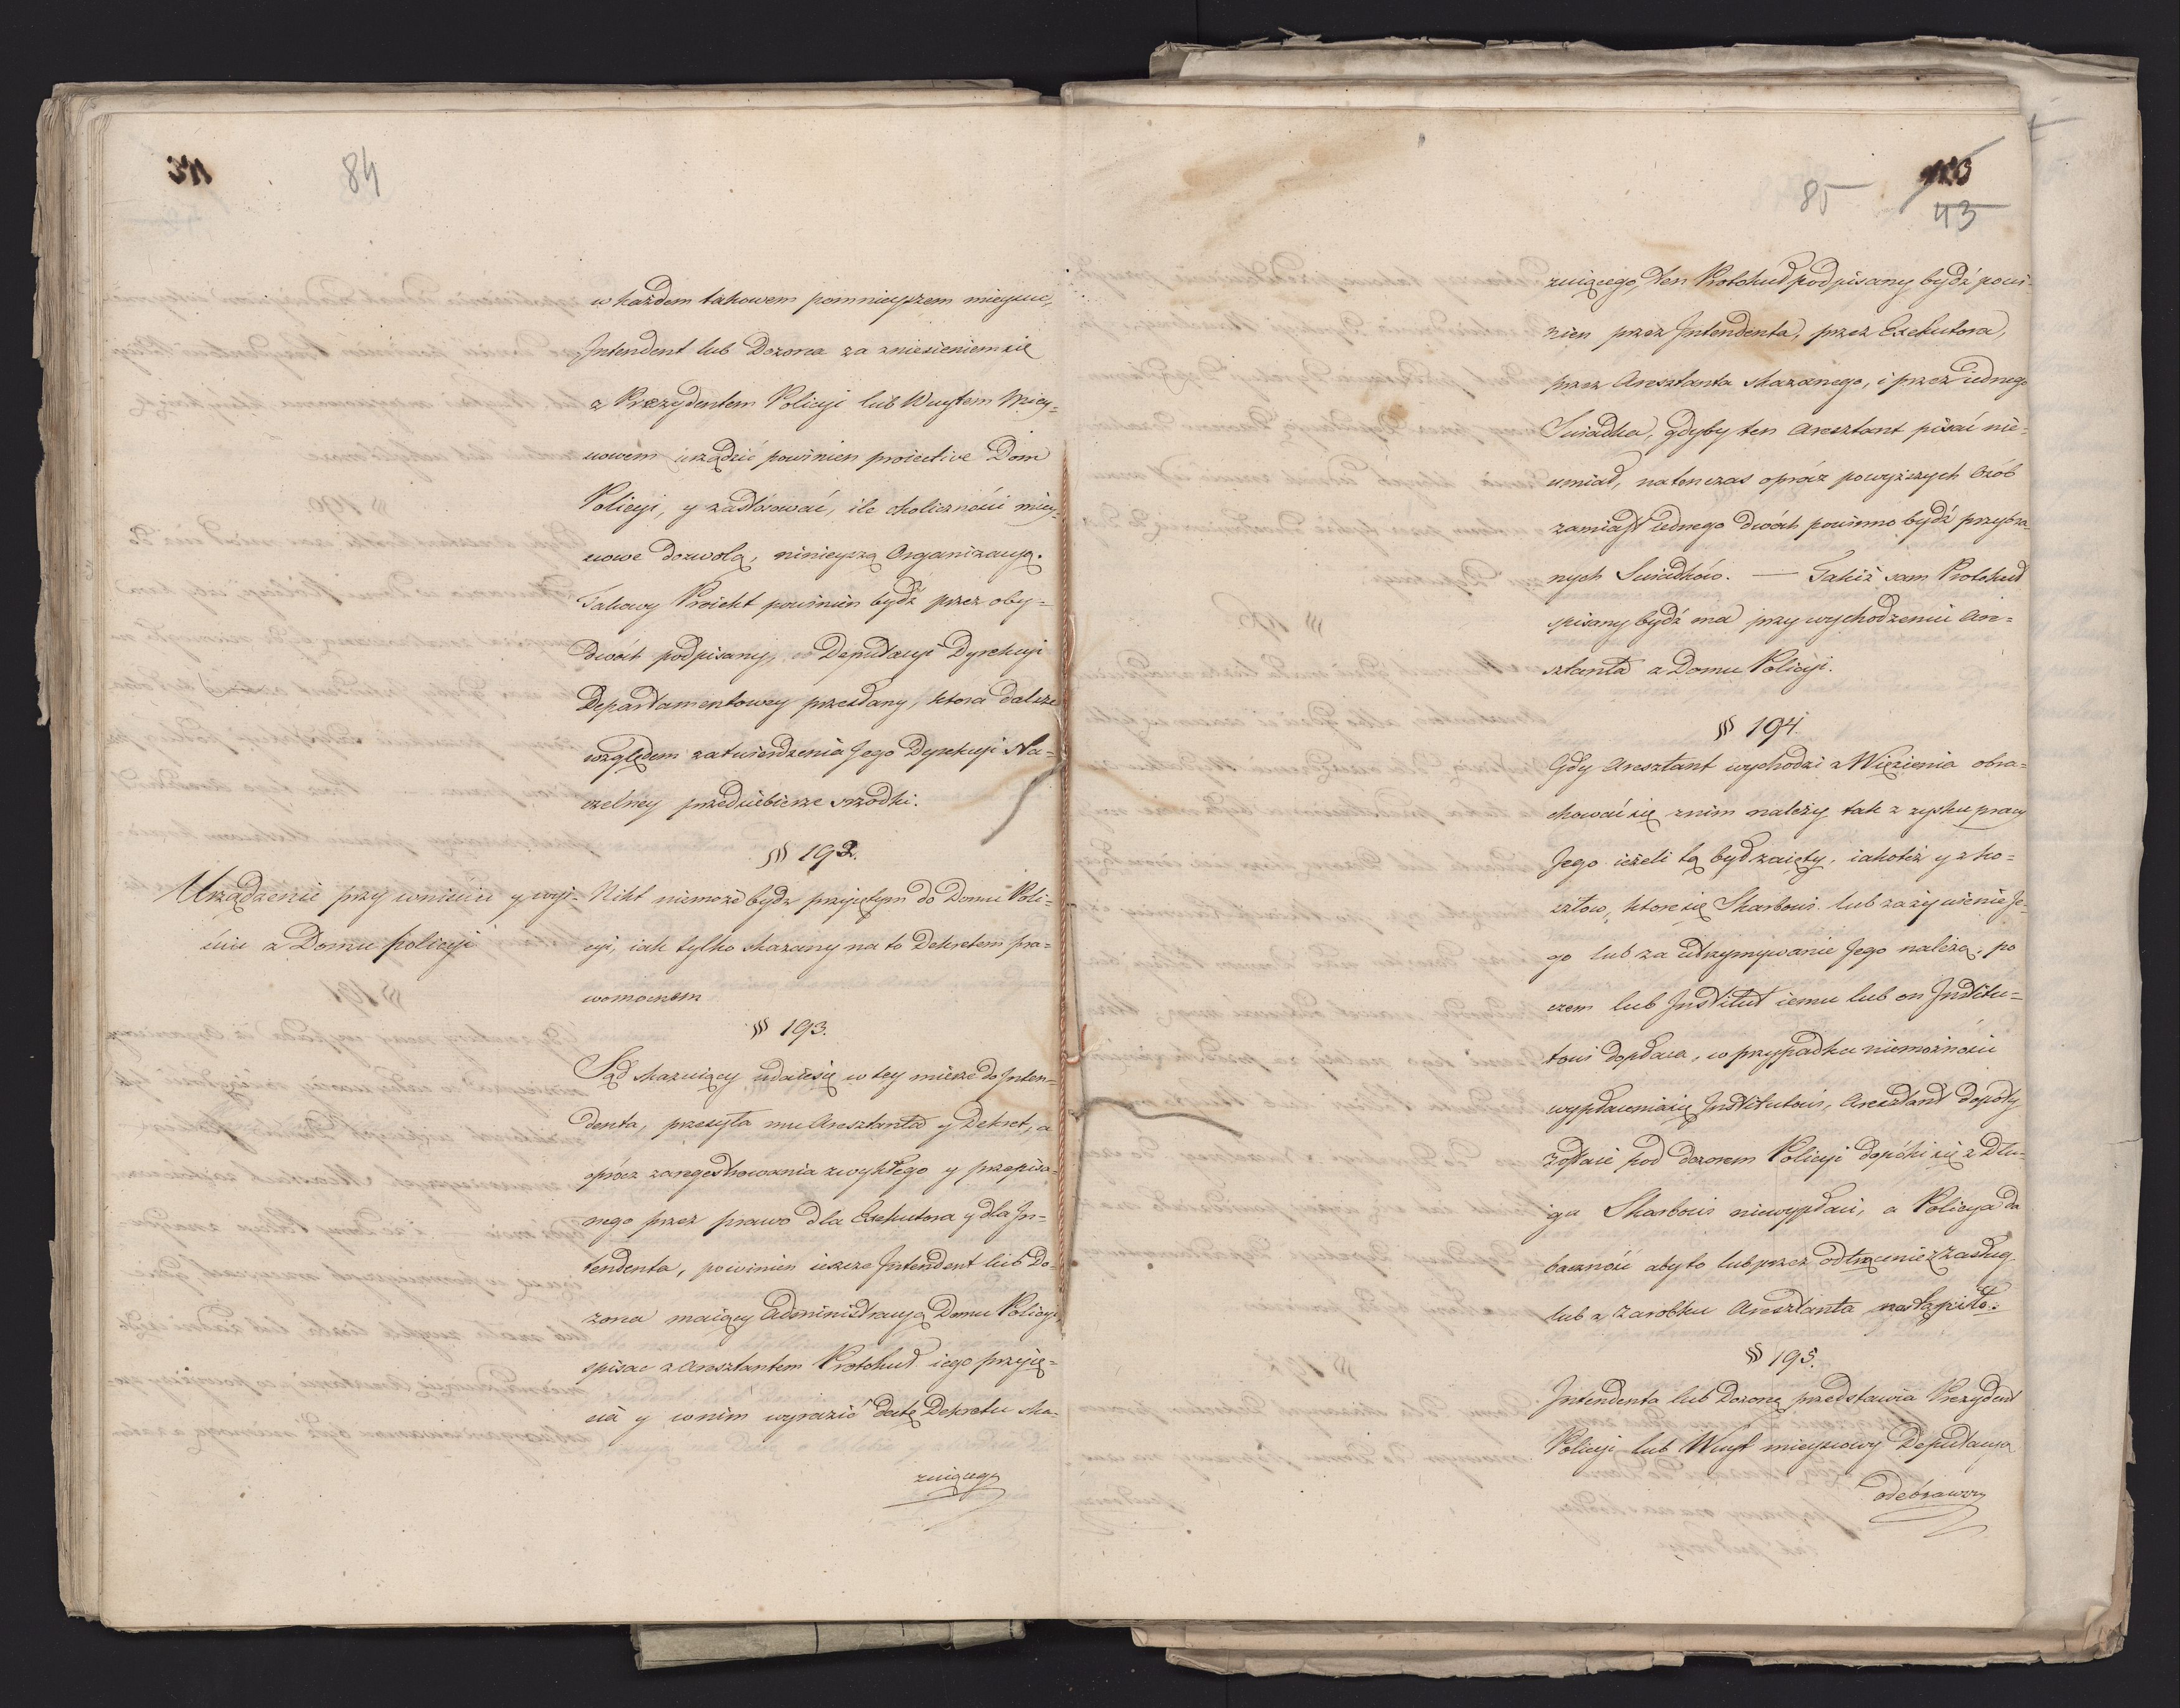 84
w każdem takowem pomnieyszem mieyscu,
Jntendent lub Dozorca za zniesieniem się
z Prezydentem Policyi lub Wuytem Miey=
scowem urządzić powinien proiective Dom
Policyi, y zastósować, ile okoliczności miey=
scowe dozwolą, ninieyszą Organizacyą.
Takowy Proiekt powinien bydź przez oby=
dwóch podpisany, Deputacyi Dyrekcyi
Departamentowey przesłany, ktora dalsze
względem zatwierdzenia Jego Dyrekcyi Na=
czelney przedsiebierze srzodki.
§§ 192.
Urządzenie przy wniściu y wyi=
ściu z Domu policyi
Nikt niemoże bydz przyiętym do Domu Poli=
cyi, iak tylko skazany na to Dekretem pra=
womocnem
§§ 193.
Sąd skazuiący udaie się w tey mierze do Jnten=
denta, przesyła mu Aresztanta y Dekret, a
oprócz zaregestrowania zwykłego y przepisa=
nego przez prawo dla Exekutora y dla Jn=
tendenta, powinien ieszcze Jntendent lub Do=
zorca maiący Administracyą Domu Policyi,
spisac z Aresztantem Protokuł iego przyię=
cia y w nim wyrazić datę Dekretu ska=
zuiącego
85
43
zuiącego, ten Protokuł podpisany bydź powi=
nien przez Jntendenta, przez Exekutora,
przez Aresztanta skazanego, i przez iednego
Swiadka, gdyby ten Aresztant pisać nie=
umiał, natenczas oprócz powyższych Osób
zamiast iednego dwóch powinno bydź przybra=
nych Swiadków. — Takiż sam Protokuł
spisany bydź ma przy wychodzeniu Are=
sztanta z Domu Policyi.
§§ 194.
Gdy Aresztant wychodzi z Więzienia obra=
chować się z nim należy tak z zysku pracy
Jego ieżeli tą był zaięty, iakoteż y z ko=
sztow, ktore się Skarbowi lub za żywienie Je=
go lub za utrzymywanie Jego należą, po
czem lub Jnstitut iemu lub on Jnstitu=
towi dopłaca, w przypadku niemożności
wypłacenia się Jnstitutowi, Aresztant dopóty
zostaie pod dozorem Policyi dopóki się z Dłu=
gu Skarbowi niewypłaci, a Policya da
baczność aby to lub przez odtrącenie z zasług
lub z zarobku Aresztanta nastąpiło.
§§ 195.
Jntendenta lub Dozorcę przedstawia Prezydent
Policyi lub Wuyt mieyscowy Deputacya
odebrawszy